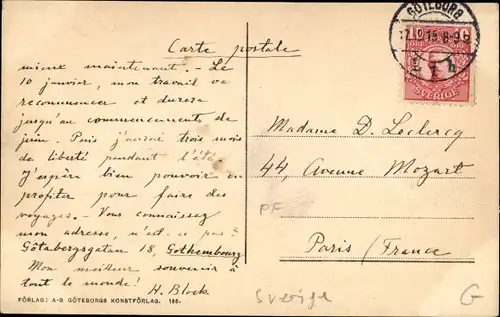 Carte postale
mieux maintenant. – Le
10 janvier, mon travail va
recommencer et durera
jusqu'au commencements de
juin. Puis j'aurai trois mois
de liberté pendant l'été.
J'espère bien pouvoir en
profiter pour faire des
voyages. – Vous connaissez
mon adresse, n'est-ce pas?
Götabergsgatan 18, Gothembourg
Mon meilleur souvenir à
tout le monde! H. Block
FÖRLAG: A-B GÖTEBORGS KONSTFÖRLAG. 166.
GÖTEBORG
SVERIGE
Madame D. Leclercq
44, Avenue Mozart
PF
Paris (France
Sverige
G